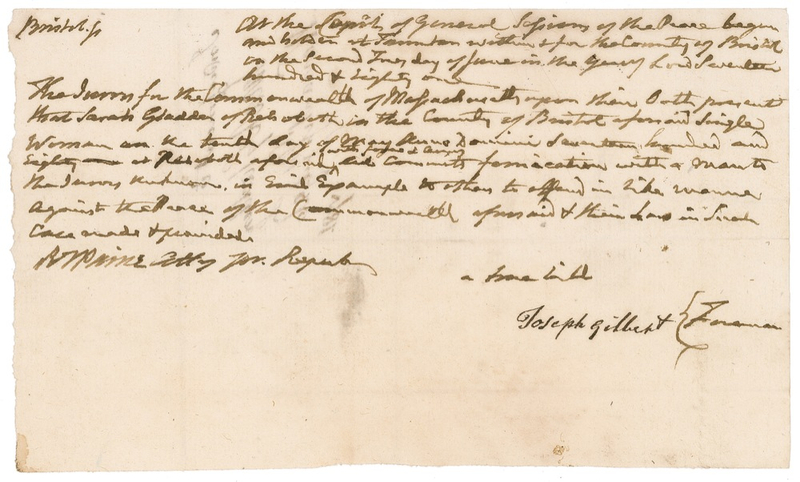 Bristol ss
At the Court of General Sessions of the Peace begun
and holden at Taunton within & for the County of Bristol
on the Second Tuesday of June in the Year of Lord Seventeen
hundred & Eighty one
The Jurors for the Commonwealth of Massachusetts upon their Oath present
that Sarah of Rehoboth in the County of Bristol aforesaid Single
Woman on the tenth day of May Anno Domini Seventeen hundred and
Eighty at Rehoboth aforesaid did Commit fornication with a Man to
the Jurors unknown, in Evil Example to others to offend in like manner
against the Peace of the Commonwealth aforesaid & their Law in Such
Case made & provided.
RTPaine Atty for Repub
a true bill
Joseph Gilbert { Foreman